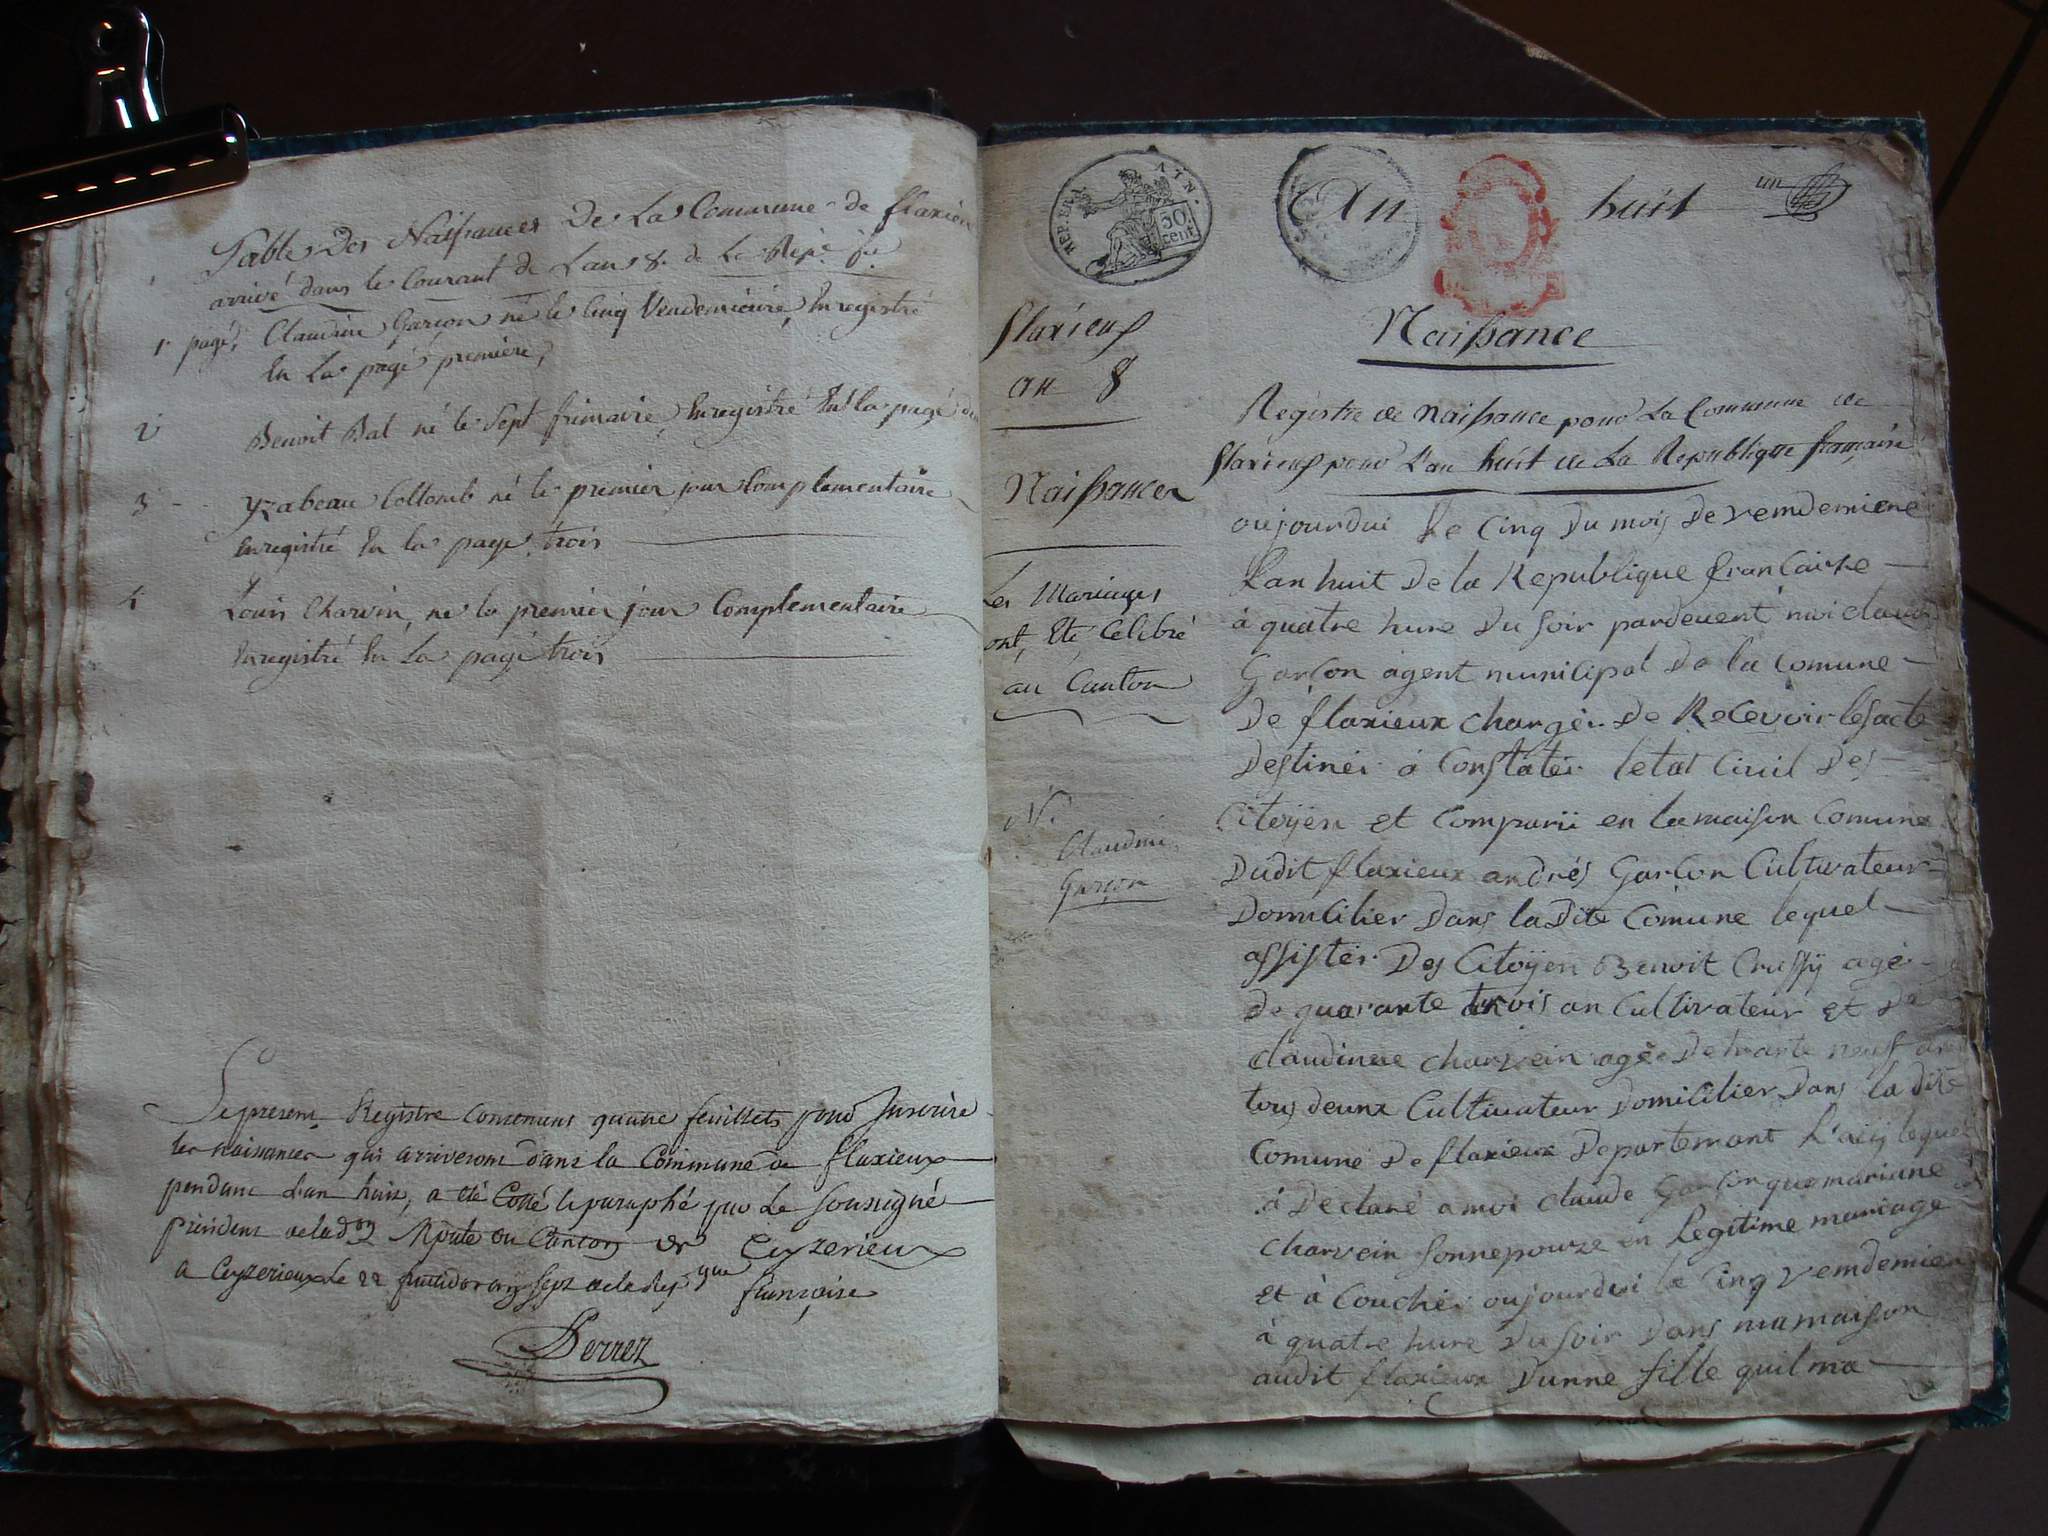 Table Des Naissances De La Commune de flaxieu
arrivé dans le Courant de Lan 8. de La Rép. fse
1r page, Claudine Garçon né le Cinq Vendemiaire, Enregistré
En La page première,
2 Benoit Bal né le Sept frimaire, Enregistré En la page
3 Yzabeau Collomb né le premier jour Complementaire
Enregistré En la page trois
4 Louis Charvin, né le premier jour Complementaire
Enregistré En La page trois
Le present Registre Contenant quatre feuillets pour Inscrire
les naissances qui arriveront dans la Commune de flaxieux
pendant l'an huit, a été Cotté et paraphé par Le Soussigné
président de lad. du Canton de Ceyzerieux
a Ceyzerieux le 22 fructidor an Sept de la Rep.que françoise
Perret
REP. FRA. AIN.
50. cent.
An huit un
flaxieux
an 8
Naissances
Les Mariages
ont Eté Celebré
au Canton
Claudine
Garçon
Naissance
Registre de Naissance pour La Commune de
flaxieux pour L'an huit de La Republique française
oujourdui le Cinq Du mois De vemdemiere
Lan huit De la Republique francaisse
à quatre hure Du soir pardevent moi claude
Garcon agent municipal De la Comune
De flaxieux charger De Recevoir les acte
Destiner à Constater letat Civil Des
Citoÿen et Comparu en la maison Comune
Dudit flaxieux andrés Garcon Cultivateur
Domicilier Dans la Dite Comune lequel
assister Des Citoÿen Benoit Crussÿ agé
De quarante trois an Cultivateur et De
claudinee charvein agée De trante neuf ans
tous deunx Cultivateur Domicilier Dans la dite
Comune De flaxieux Departemant L'ain lequel
à Declaré a moi claude Garçon que mariane
charvein sonnepouze en Legitime mariage
et à Coucher oujourdui le Cinq vemdemiere
à quatre hure Du soir Dans ma maison
audit flaxieux Dunne fille quil ma